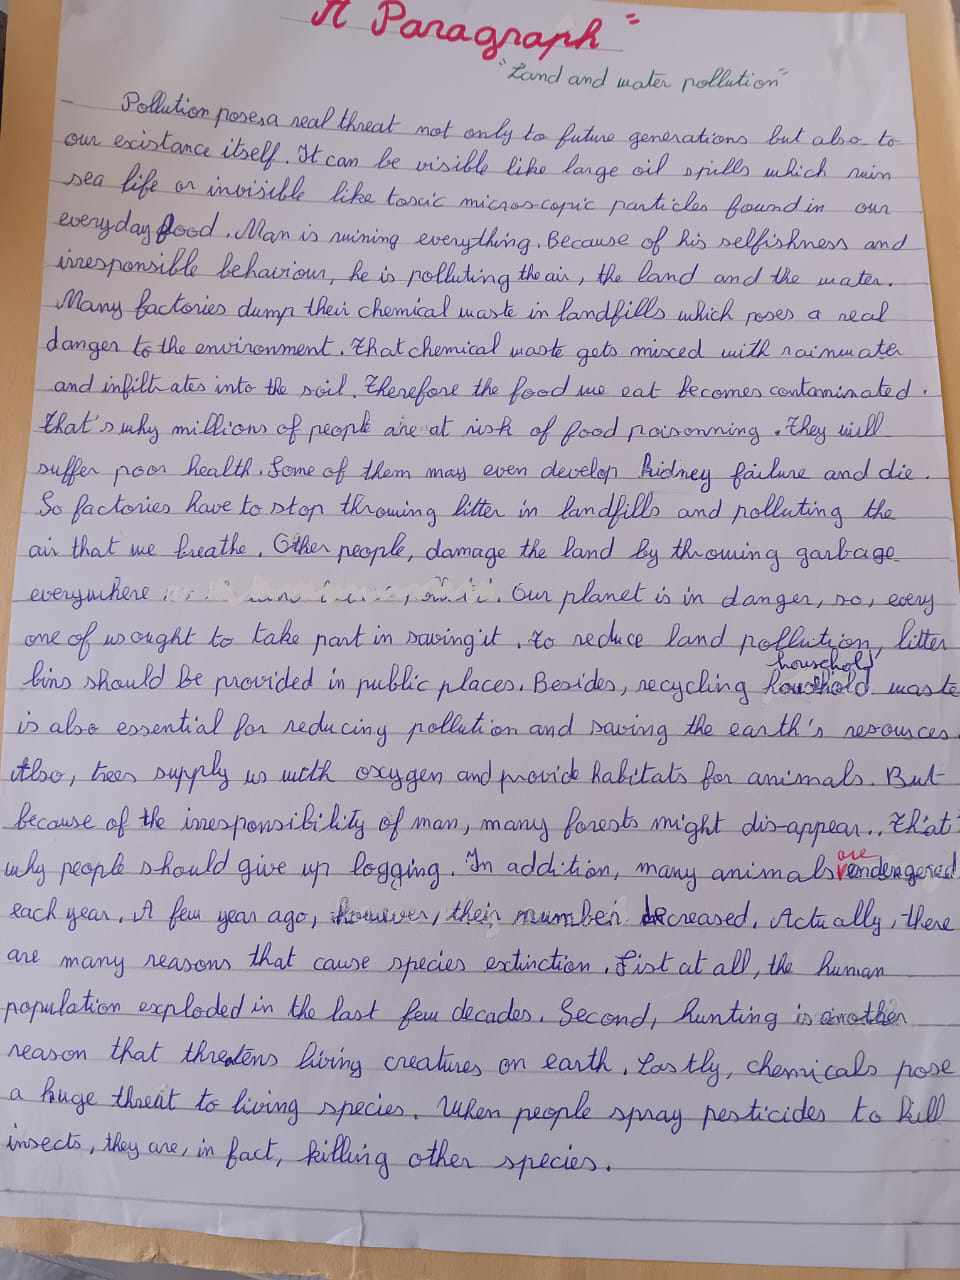 "A Paragraph"
"Land and water pollution"
- Pollution poses a real threat not only to future generations but also to
our existance itself. It can be visible like large oil spills which ruin
sea life or invisible like toxic microscopic particles found in our
everyday food. Man is ruining everything. Because of his selfishness and
irresponsible behaviour, he is polluting the air, the land and the water.
Many factories dump their chemical waste in landfills which poses a real
danger to the environment. That chemical waste gets mixed with rainwater
and infiltrates into the soil. Therefore the food we eat becomes contaminated.
That's why millions of people are at risk of food poisonning. They will
suffer poor health. Some of them may even develop kidney failure and die.
So factories have to stop throwing litter in landfills and polluting the
air that we breathe. Other people, damage the land by throwing garbage
everywhere . Our planet is in danger, so, every
one of us ought to take part in saving it. To reduce land pollution, litter
household
bins should be provided in public places. Besides, recycling household waste
is also essential for reducing pollution and saving the earth's resources.
Also, trees supply us with oxygen and provide habitats for animals. But
because of the irresponsibility of man, many forests might dis-appear.. That'
are
why people should give up logging. In addition, many animals endengered
each year. A few year ago, however, their number decreased. Actually, there
are many reasons that cause species extinction. Fist at all, the human
population exploded in the last few decades. Second, hunting is another
reason that threatens living creatures on earth. Lastly, chemicals pose
a huge threat to living species. When people spray pesticides to kill
insects, they are, in fact, killing other species.